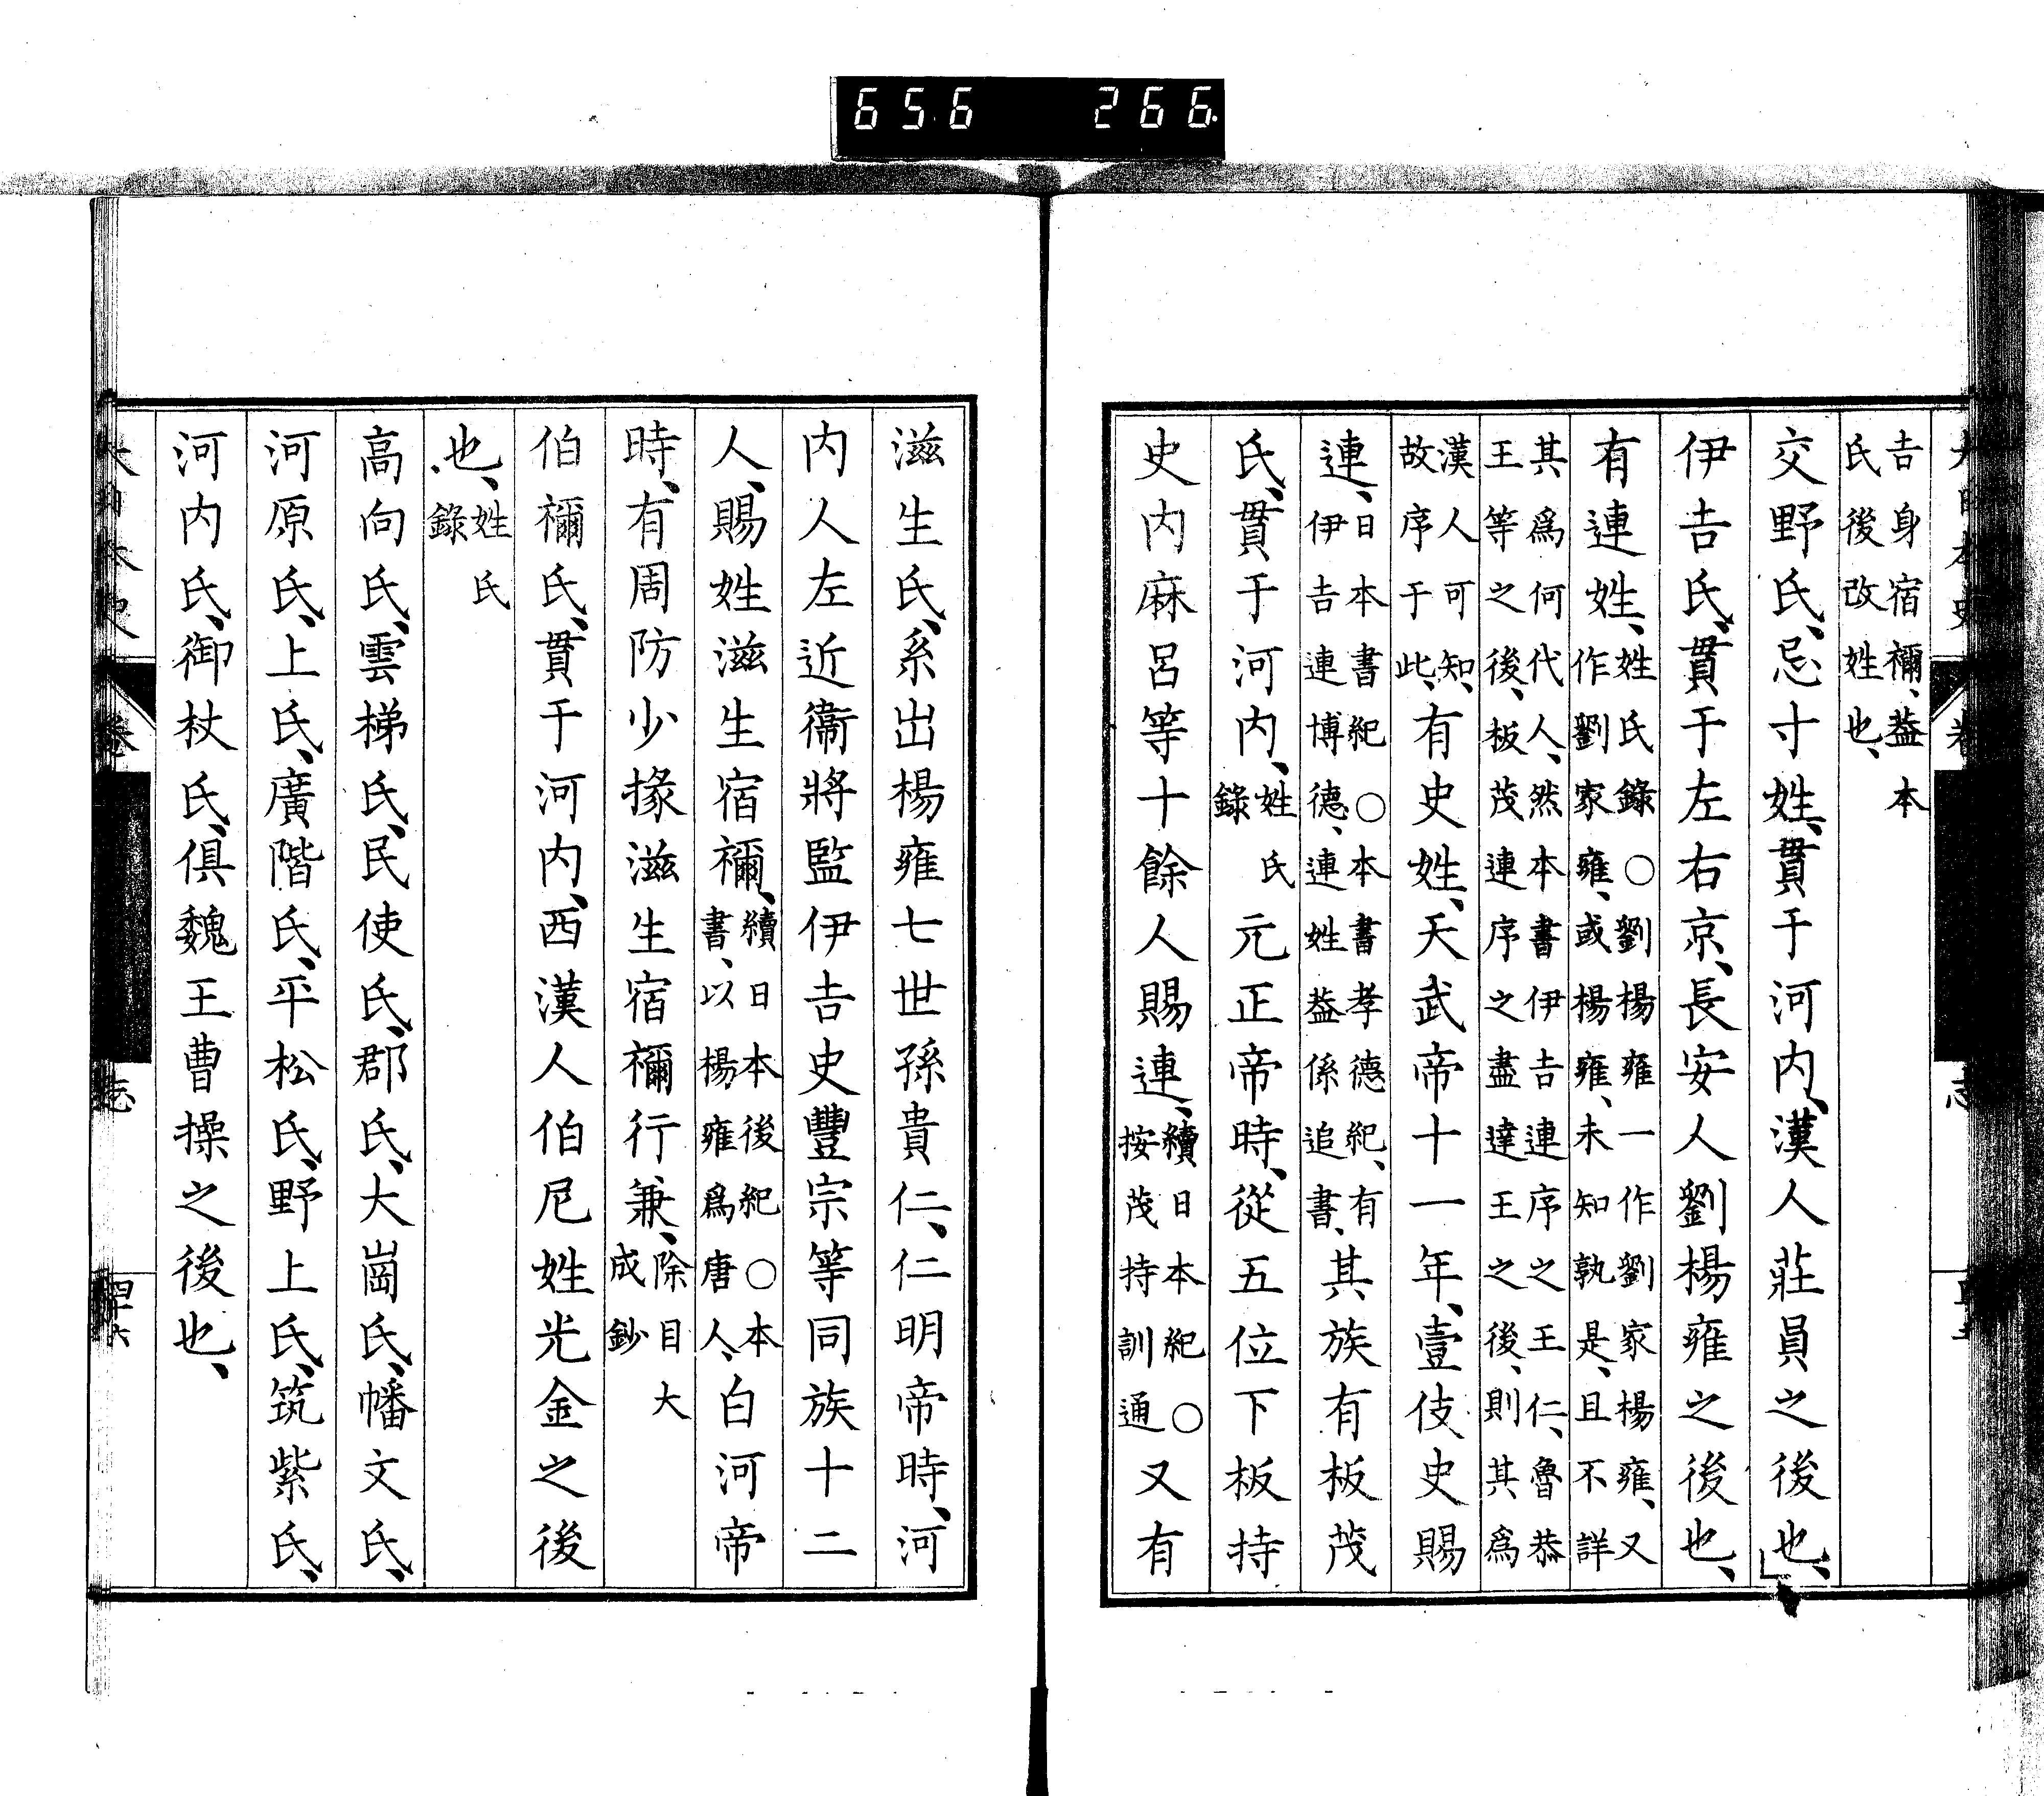 656 266
吉身宿禰、葢本
氏後改姓也、
交野氏、忌寸姓、貫于河内、漢人莊員之後也、
伊吉氏、貫于左右京、長安人劉楊雍之後也、
有連姓、姓氏錄○劉楊雍一作劉家楊雍、又
作劉家雍、或楊雍、未知孰是、且不詳
其爲何代人、然本書伊吉連序之王仁、魯恭
王等之後、板茂連序之盡達王之後、則其爲
漢人可知、
故序于此、有史姓、天武帝十一年、壹伎史賜
連、日本書紀○本書孝德紀、有
伊吉連博德、連姓葢係追書、其族有板茂
氏、貫于河内、姓氏
錄元正帝時、從五位下板持
史内麻呂等十餘人賜連、續日本紀○
按茂持訓通又有
滋生氏、系出楊雍七世孫貴仁、仁明帝時、河
内人左近衞將監伊吉史豐宗等同族十二
人、賜姓滋生宿禰、續日本後紀○本
書、以楊雍爲唐人、白河帝
時、有周防少掾滋生宿禰行兼、除目大
成鈔
伯禰氏、貫于河内、西漢人伯尼姓光金之後
也、姓氏
錄
高向氏、雲梯氏、民使氏、郡氏、大崗氏、幡文氏、
河原氏、上氏、廣階氏、平松氏、野上氏、筑紫氏、
河内氏、御杖氏、俱魏王曹操之後也、
大日本史 卷 志 四十六